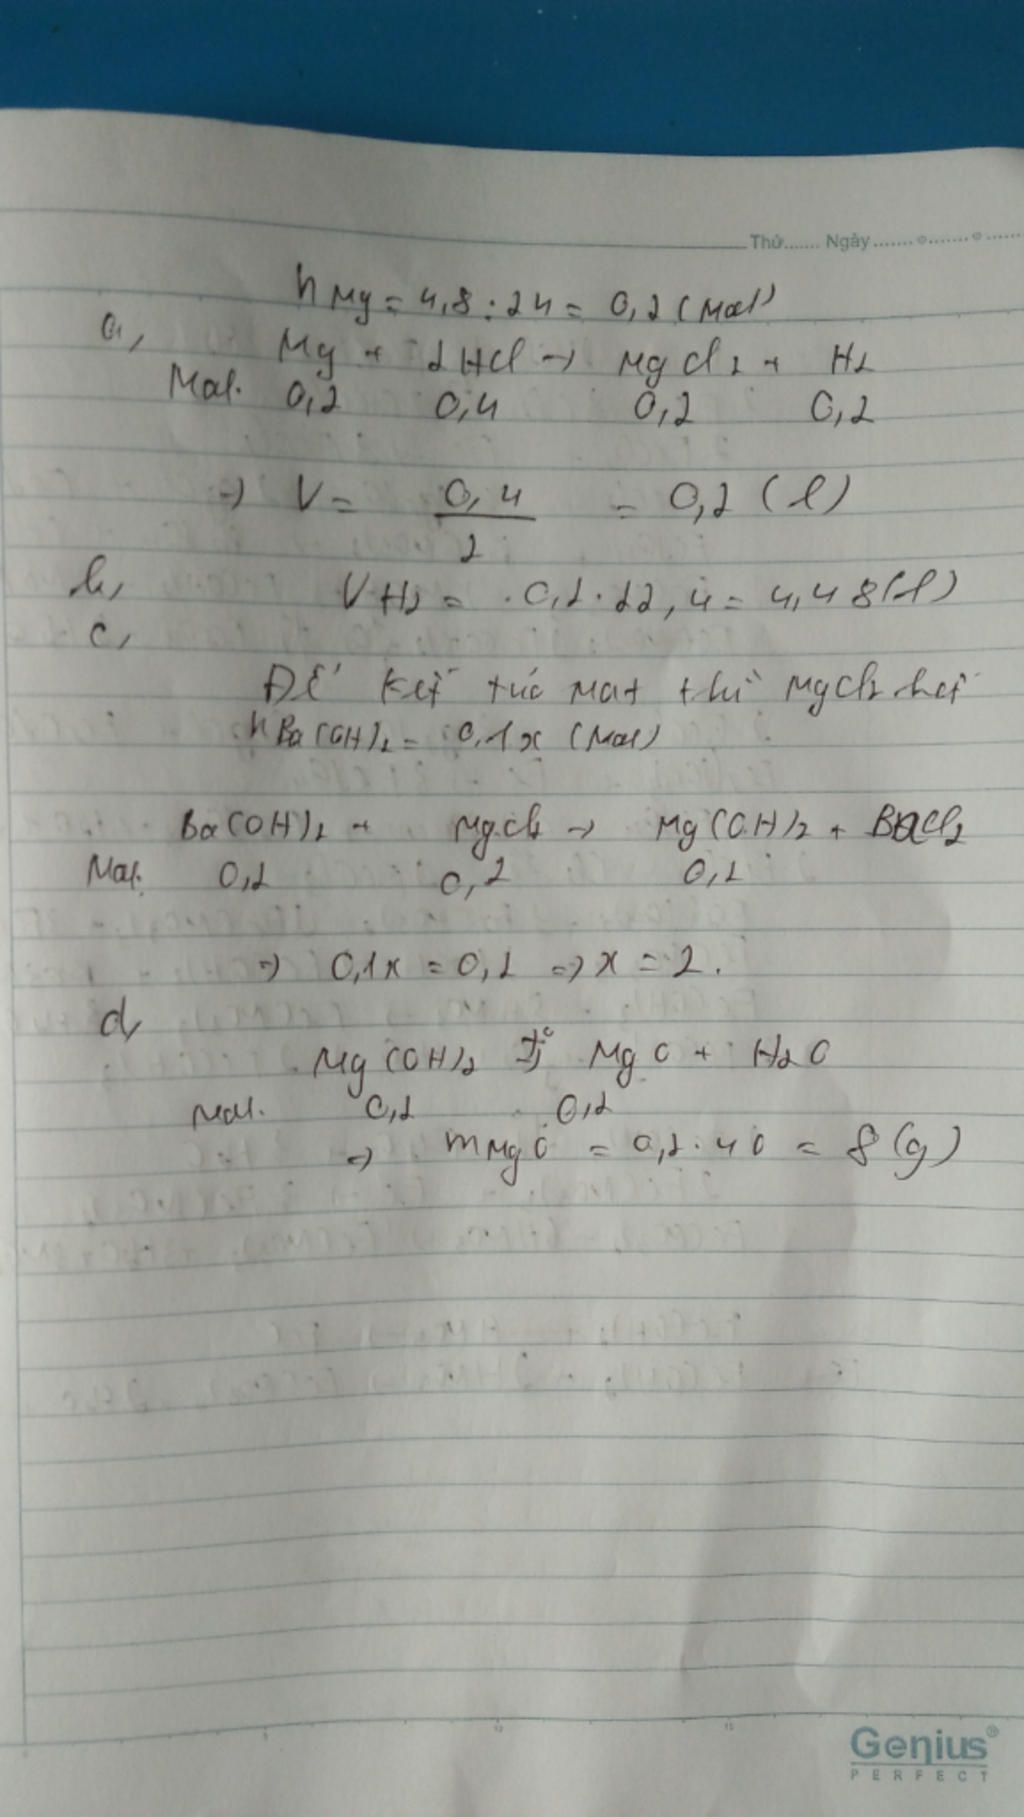 Thứ....... Ngày.......
nMg = 4,8 : 24 = 0,2 (mol)
a, Mg + 2HCl → MgCl2 + H2
Mol. 0,2 0,4 0,2 0,2
→ V = 0,4 / 2 = 0,2 (l)
b, VH2 = 0,2 . 22,4 = 4,48 (l)
c,
Để kết tủa max thì MgCl2 hết
nBa(OH)2 = 0,1x (mol)
Ba(OH)2 + MgCl2 → Mg(OH)2 + BaCl2
Mol. 0,2 0,2 0,2
→ 0,1x = 0,2 => x = 2.
d,
Mg(OH)2 t°→ MgO + H2O
Mol. 0,2 0,2
=> mMgO = 0,2 . 40 = 8 (g)
Genius®
PERFECT